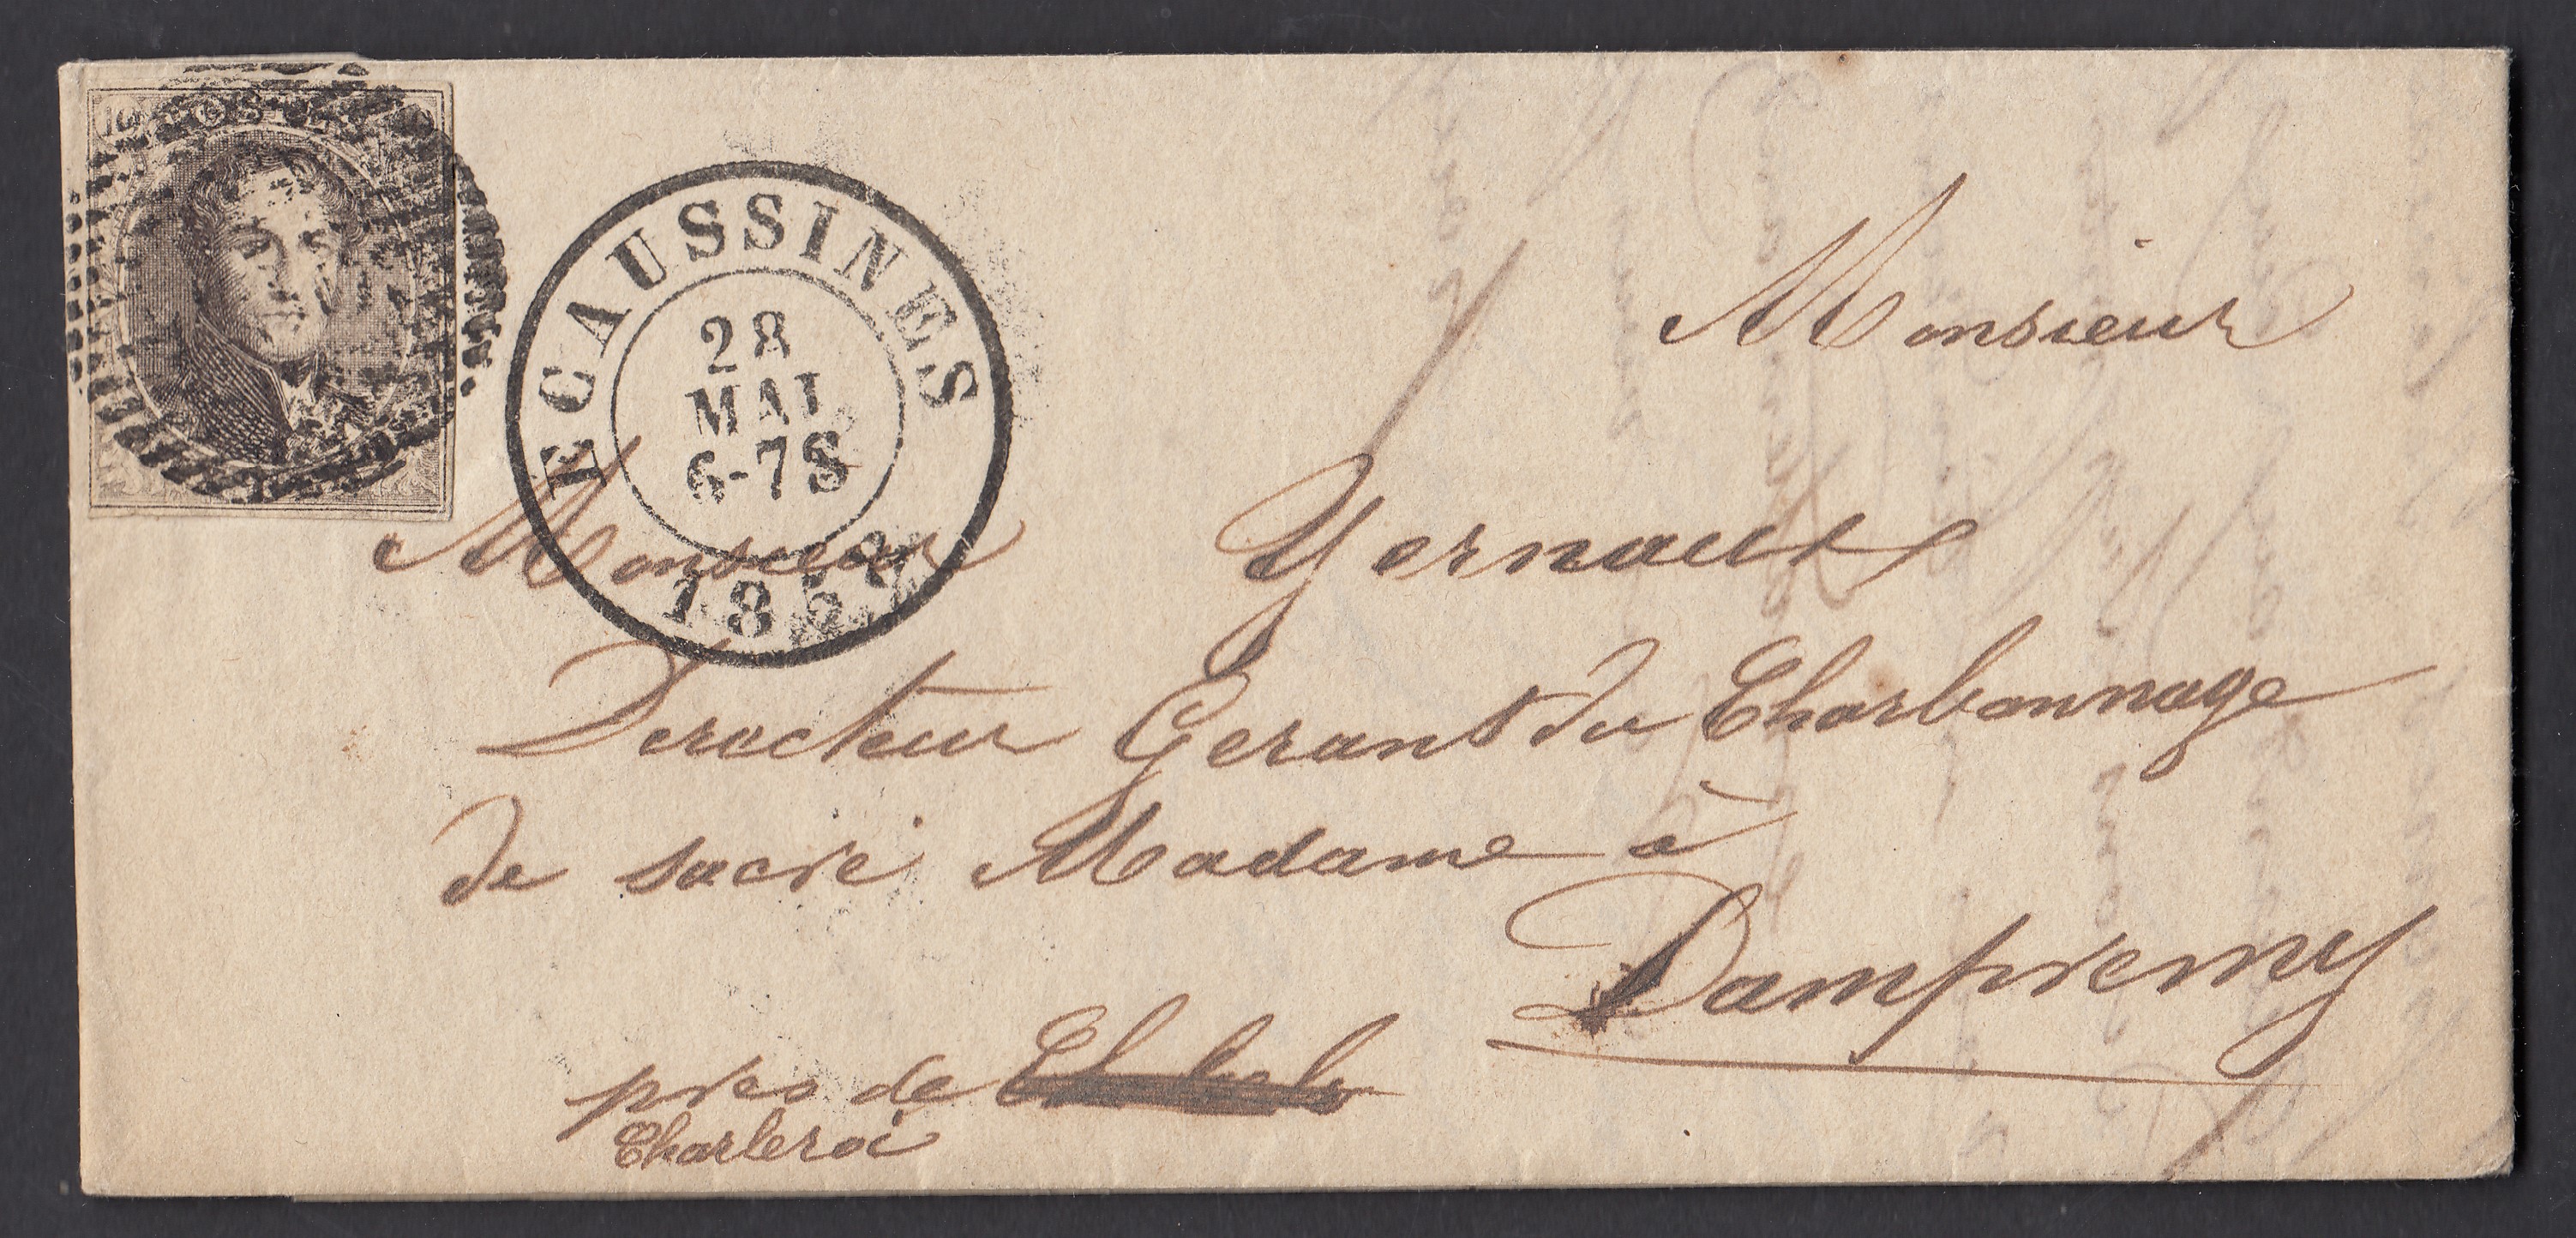 10 POSTES
ECAUSSINES
28
MAI
6-7S
185
Monsieur
Monsieur Yernaux
Derecteur Gerant du Charbonnage
de sacré Madame à
Dampremy
pres de
Charleroi